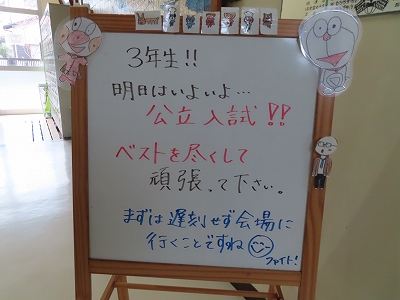 3年生!!
明日はいよいよ…
公立入試!!
ベストを尽くして
頑張って下さい。
まずは遅刻せず会場に
行くことですね
ファイト!